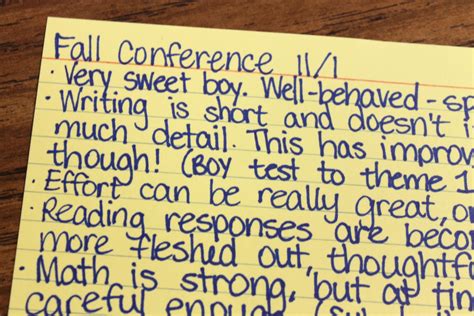 Fall Conference 11/1
· Very sweet boy. Well-behaved - sp
· Writing is short and doesn't
much detail. This has improv
though! (BOY test to theme 1
· Effort can be really great, o
· Reading responses are beco
more fleshed out, thoughtf
· Math is strong, but at tim
careful enough